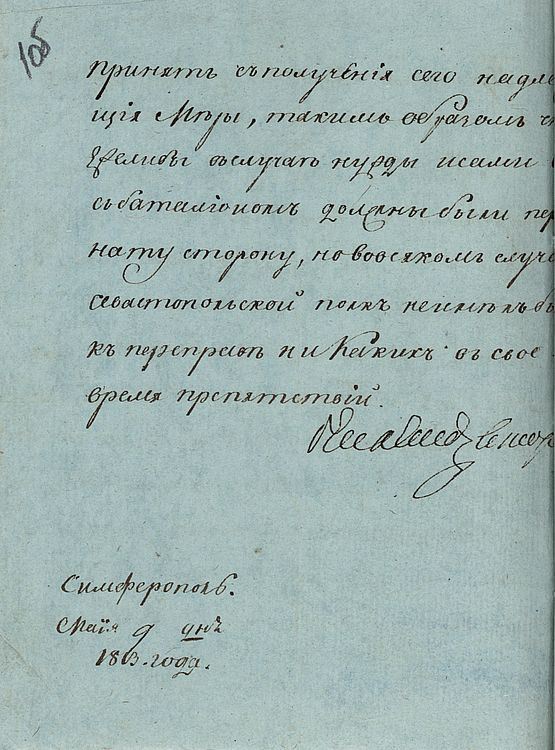 106
принять съполученія сего надле
щія Меры, такимъ образомъ
Ежелибы въслучаѣ нужды исами
събаталіономъ должны были пер
нату сторону, но вовсякомъ случ
севастопольской полкъ неимѣлъ бы
къ переправѣ ни Какихъ въ свое
время препятствій.
Симферополь.
Маія 9 дня
1803. года.